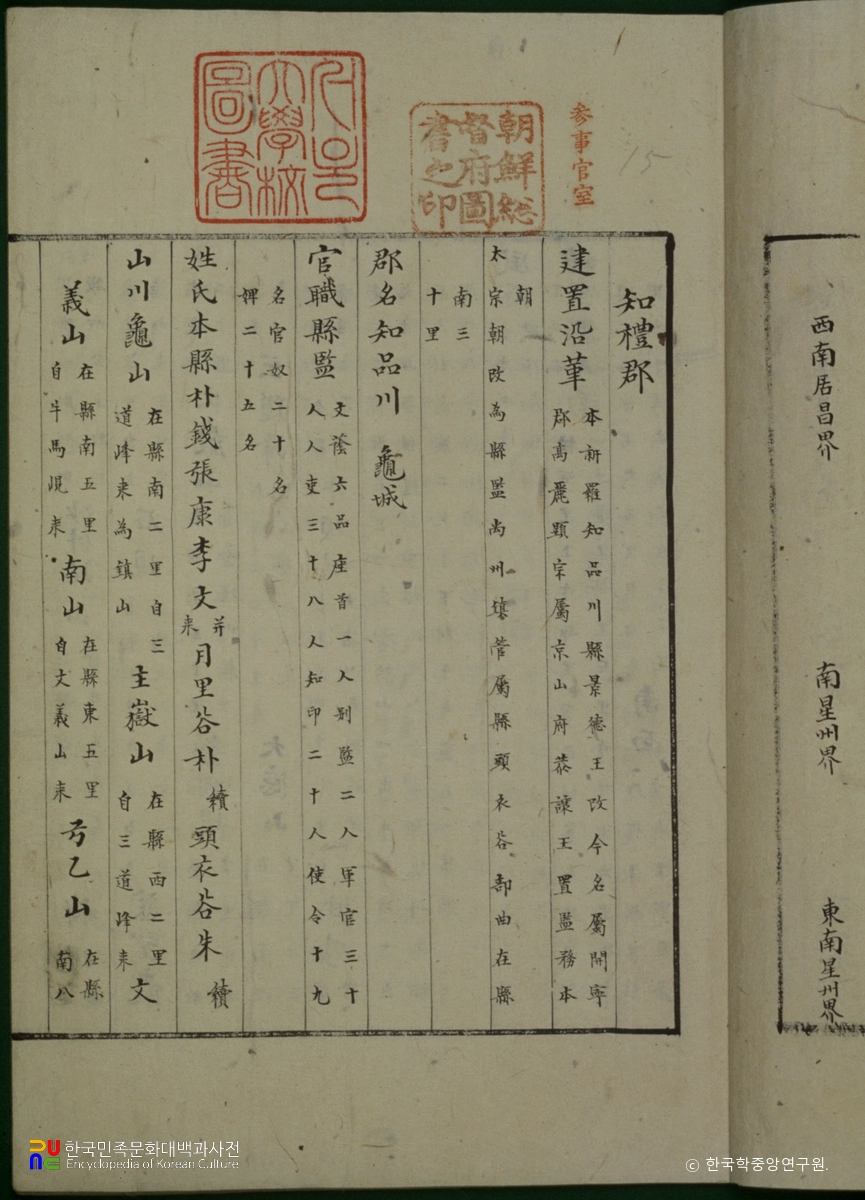 西南居昌界
南星州界
東南星州界
15
參事官室
朝鮮総
督府圖
書之印
大學校
圖書
知禮郡
建置沿革
本新羅知品川縣景德王改今名屬開寧
郡高麗顯宗屬京山府恭讓王置監務本
朝
太宗朝改為縣監尚州鎮管屬縣頭衣谷部曲在縣
南三
十里
郡名知品川 龜城
官職縣監
文蔭六品座首一人別監二人軍官三十
人人吏三十八人知印二十人使令十九
名官奴二十名
婢二十五名
姓氏本縣朴錢張康李文 并来 月里谷朴 續 頭衣谷朱 續
山川龜山
在縣南二里自三
道峰来為鎮山
主嶽山
在縣西二里
自三道峰来
文
義山
在縣南五里
自牛馬峴来
南山
在縣東五里
自文義山来
亏乙山
在縣
南八
한국민족문화대백과사전
Encyclopedia of Korean Culture
ⓒ 한국학중앙연구원.